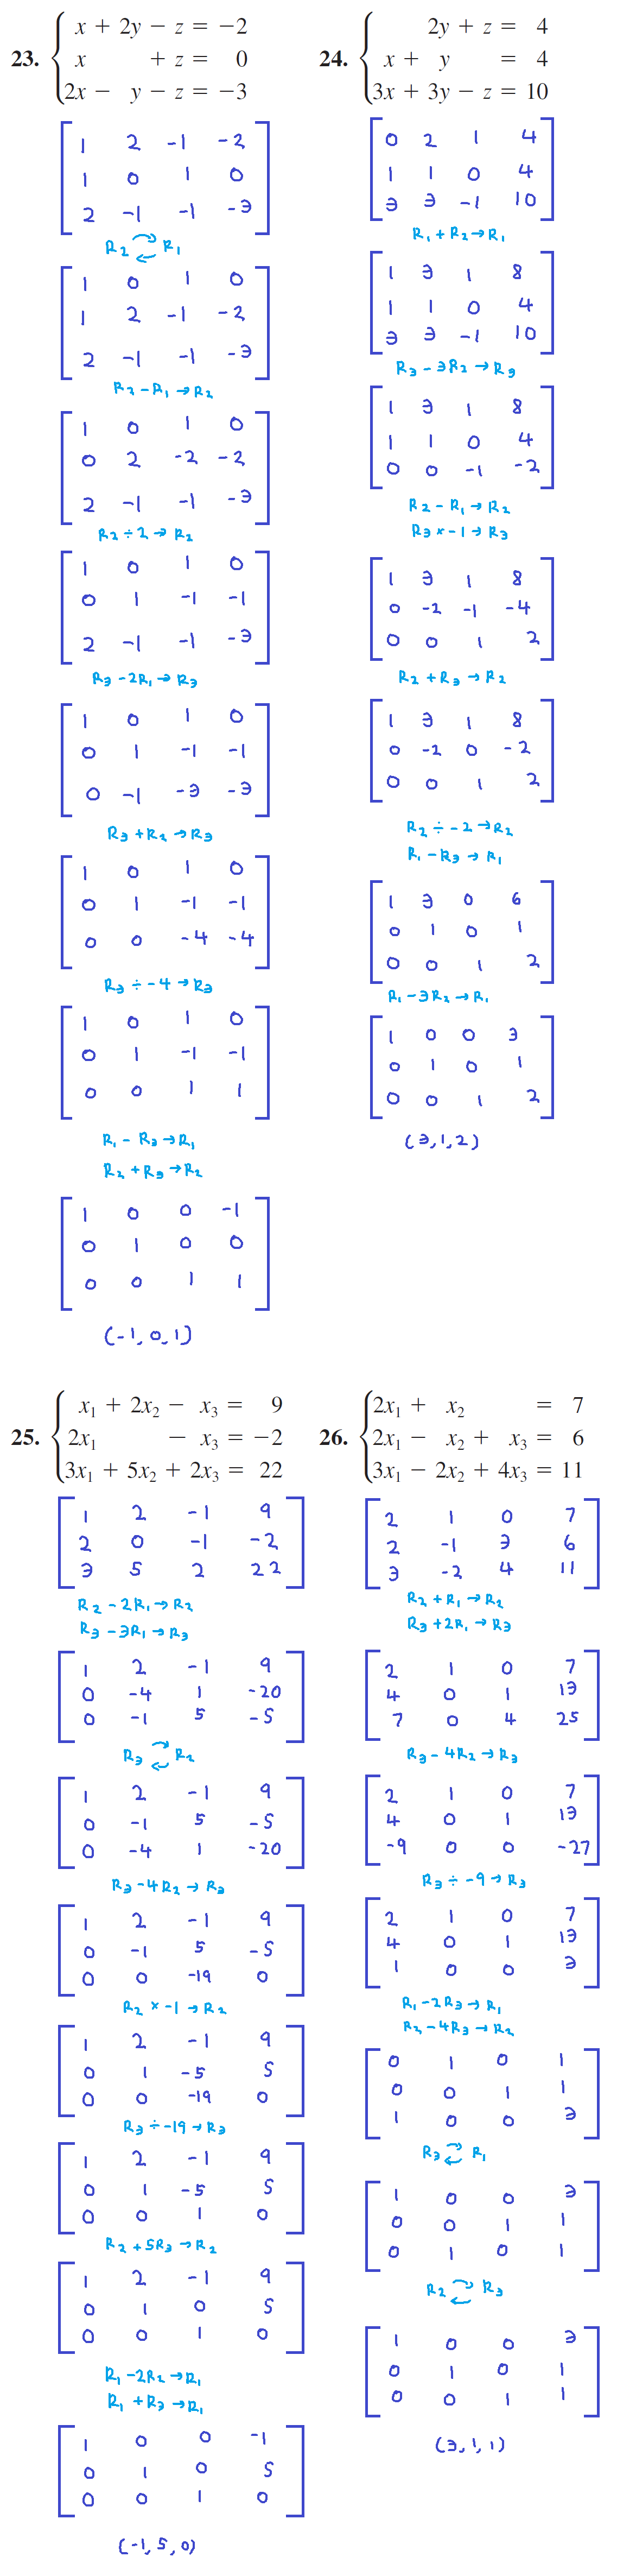 23. x + 2y − z = −2
x + z = 0
2x − y − z = −3
1 2 -1 -2
1 0 1 0
2 -1 -1 -3
R2 ⇄ R1
1 0 1 0
1 2 -1 -2
2 -1 -1 -3
R2 - R1 → R2
1 0 1 0
0 2 -2 -2
2 -1 -1 -3
R2 ÷ 2 → R2
1 0 1 0
0 1 -1 -1
2 -1 -1 -3
R3 - 2R1 → R3
1 0 1 0
0 1 -1 -1
0 -1 -3 -3
R3 + R2 → R3
1 0 1 0
0 1 -1 -1
0 0 -4 -4
R3 ÷ -4 → R3
1 0 1 0
0 1 -1 -1
0 0 1 1
R1 - R3 → R1
R2 + R3 → R2
1 0 0 -1
0 1 0 0
0 0 1 1
(-1, 0, 1)
24. 2y + z = 4
x + y = 4
3x + 3y − z = 10
0 2 1 4
1 1 0 4
3 3 -1 10
R1 + R2 → R1
1 3 1 8
1 1 0 4
3 3 -1 10
R3 - 3R2 → R3
1 3 1 8
1 1 0 4
0 0 -1 -2
R2 - R1 → R2
R3 × -1 → R3
1 3 1 8
0 -2 -1 -4
0 0 1 2
R2 + R3 → R2
1 3 1 8
0 -2 0 -2
0 0 1 2
R2 ÷ -2 → R2
R1 - R3 → R1
1 3 0 6
0 1 0 1
0 0 1 2
R1 - 3R2 → R1
1 0 0 3
0 1 0 1
0 0 1 2
(3, 1, 2)
25. x1 + 2x2 − x3 = 9
2x1 − x3 = −2
3x1 + 5x2 + 2x3 = 22
1 2 -1 9
2 0 -1 -2
3 5 2 22
R2 - 2R1 → R2
R3 - 3R1 → R3
1 2 -1 9
0 -4 1 -20
0 -1 5 -5
R3 ⇄ R2
1 2 -1 9
0 -1 5 -5
0 -4 1 -20
R3 - 4R2 → R3
1 2 -1 9
0 -1 5 -5
0 0 -19 0
R2 × -1 → R2
1 2 -1 9
0 1 -5 5
0 0 -19 0
R3 ÷ -19 → R3
1 2 -1 9
0 1 -5 5
0 0 1 0
R2 + 5R3 → R2
1 2 -1 9
0 1 0 5
0 0 1 0
R1 - 2R2 → R1
R1 + R3 → R1
1 0 0 -1
0 1 0 5
0 0 1 0
(-1, 5, 0)
26. 2x1 + x2 = 7
2x1 − x2 + x3 = 6
3x1 − 2x2 + 4x3 = 11
2 1 0 7
2 -1 3 6
3 -2 4 11
R2 + R1 → R2
R3 + 2R1 → R3
2 1 0 7
4 0 1 13
7 0 4 25
R3 - 4R2 → R3
2 1 0 7
4 0 1 13
-9 0 0 -27
R3 ÷ -9 → R3
2 1 0 7
4 0 1 13
1 0 0 3
R1 - 2R3 → R1
R2 - 4R3 → R2
0 1 0 1
0 0 1 1
1 0 0 3
R3 ⇄ R1
1 0 0 3
0 0 1 1
0 1 0 1
R2 ⇄ R3
1 0 0 3
0 1 0 1
0 0 1 1
(3, 1, 1)